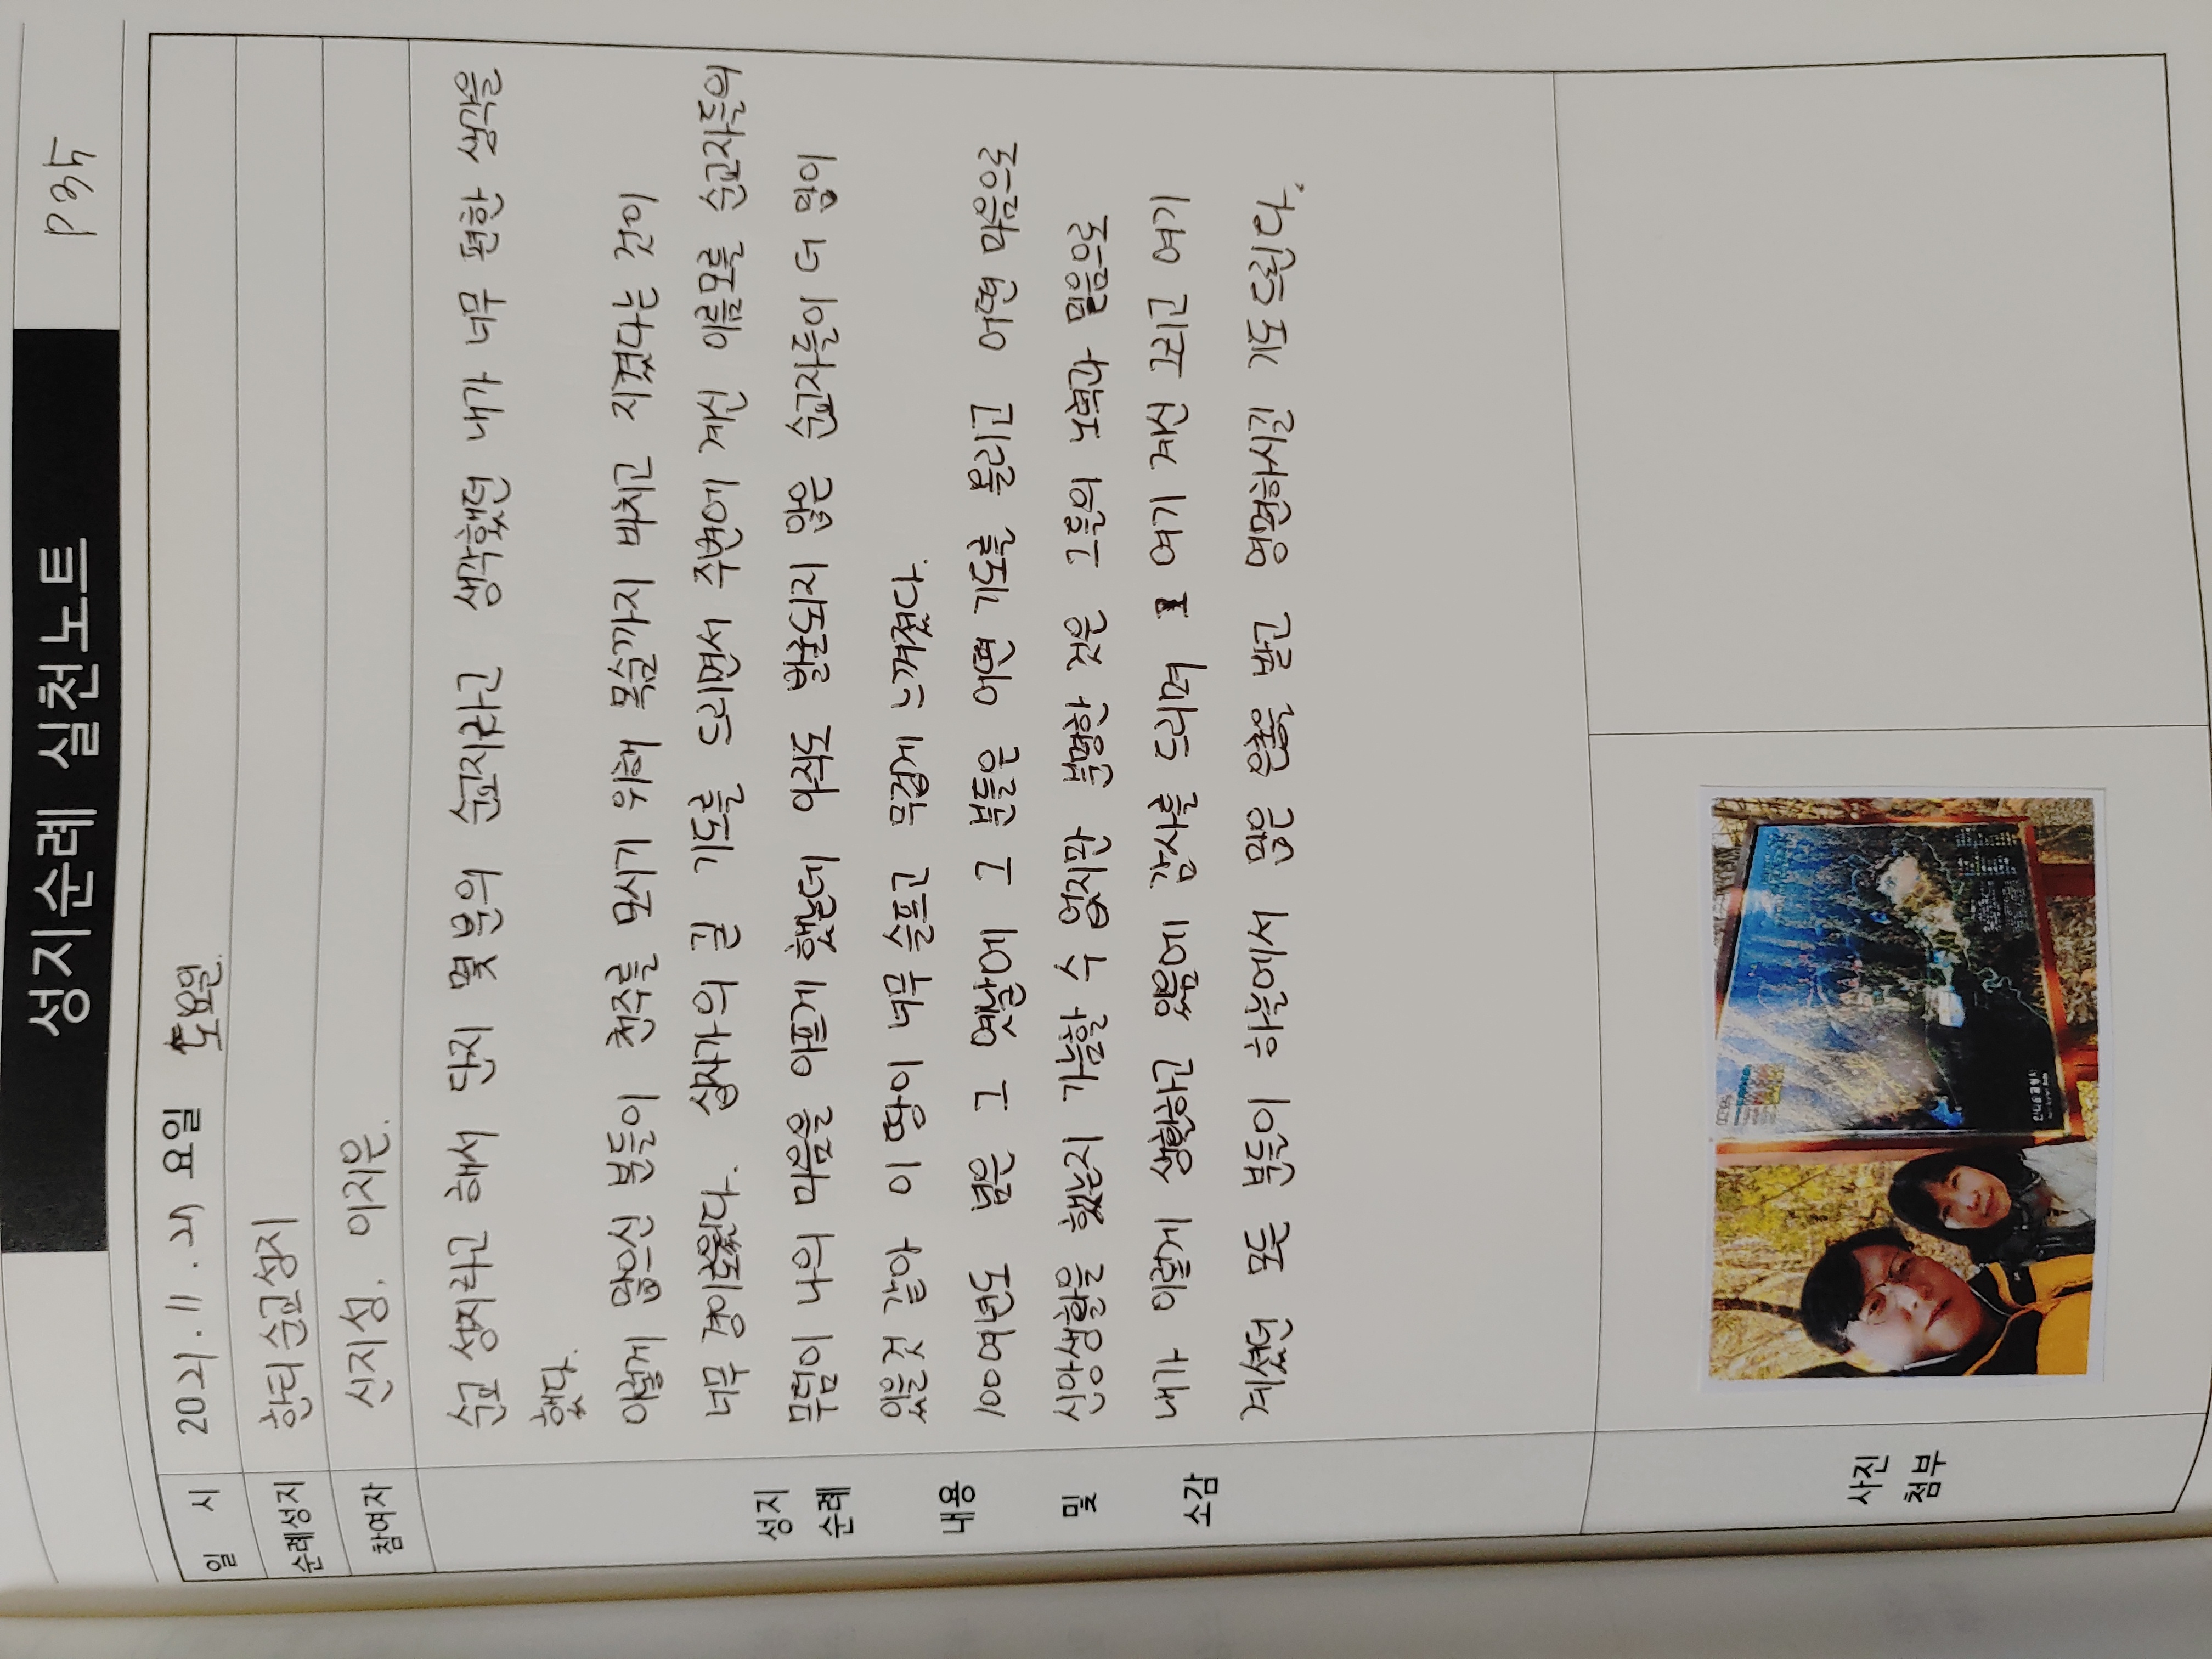 성지순례 실천노트
P 35
일 시
2021. 11. 27 요일 토요일.
순례성지
한티순교성지
참여자
신지성. 이지은.
성지
순례
내용
및
소감
순교 성지라고 해서 단지 몇분의 순교지라고 생각했던 내가 너무 편한 생각을
했다.
이렇게 많으신 분들이 천주를 모시기 위해 목숨까지 바치고 지켰다는 것이
너무 경이로웠다. 십자가의 길 기도를 드리면서 주변에 계신 이름모를 순교자들의
무덤이 나의 마음을 아프게 했는데 아직도 발굴되지 않은 순교자들이 더 많이
있을것 같아 이 땅이 너무 슬프고 무겁게 느껴졌다.
100여년도 넘은 그 옛날에 그 분들은 어떤 기도를 올리고 어떤 마음으로
신앙생활을 했는지 가늠할 수 없지만 분명한 것은 그들의 노력과 믿음으로
내가 이렇게 생활하고 있음에 감사를 드리며 여기 계신 그리고 여기
계셨던 모든 분들이 하늘에서 많은 은총을 받고 영면하시길 기도드린다.
사진
첨부